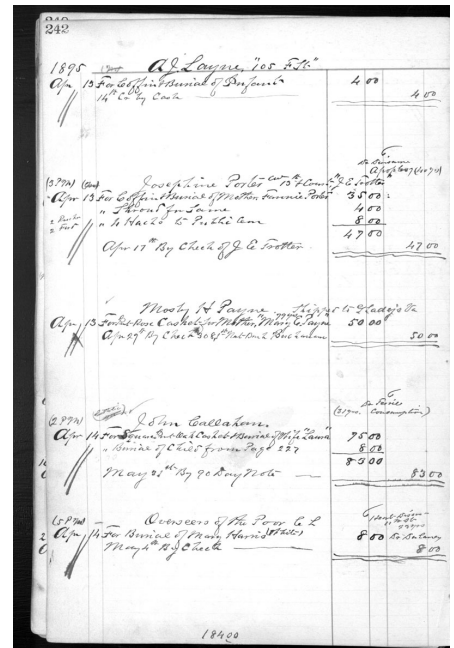 242
1895 A J Layne, "105 F St."
Apr 13 For Coffin & Burial of Infant 4 00
14th Cr by Cash 4 00
Apoplexy
(3 P.M.) Josephine Porter Cor 13th & Court "J E Trotter"
Apr 13 For Coffin & Burial of Mother Fannie Porter 35 00
" Shroud for Same 4 00
" 4 Hacks to Public Cem 8 00
47 00
Apr 17th By Check of J E Trotter 47 00
Mosby H Payne Shipped to Gladys Va
Apr 13 For Rose Casket for Mother, Mary C Payne 50 00
Apr 29th By Check Nat Bank Buchanan 50 00
(2 P.M.) John Callaham. Consumption)
Apr 14 For Square Casket & Burial of Wife "Laura" 75 00
" Burial of Child from Page 227 8 00
83 00
May 25th By 90 Day Note 83 00
(5 P.M.) Overseers of the Poor C L
Apr 14 For Burial of Mary Harris (White) 8 00 Dr Dulaney
May 4th By Check 8 00
184 00